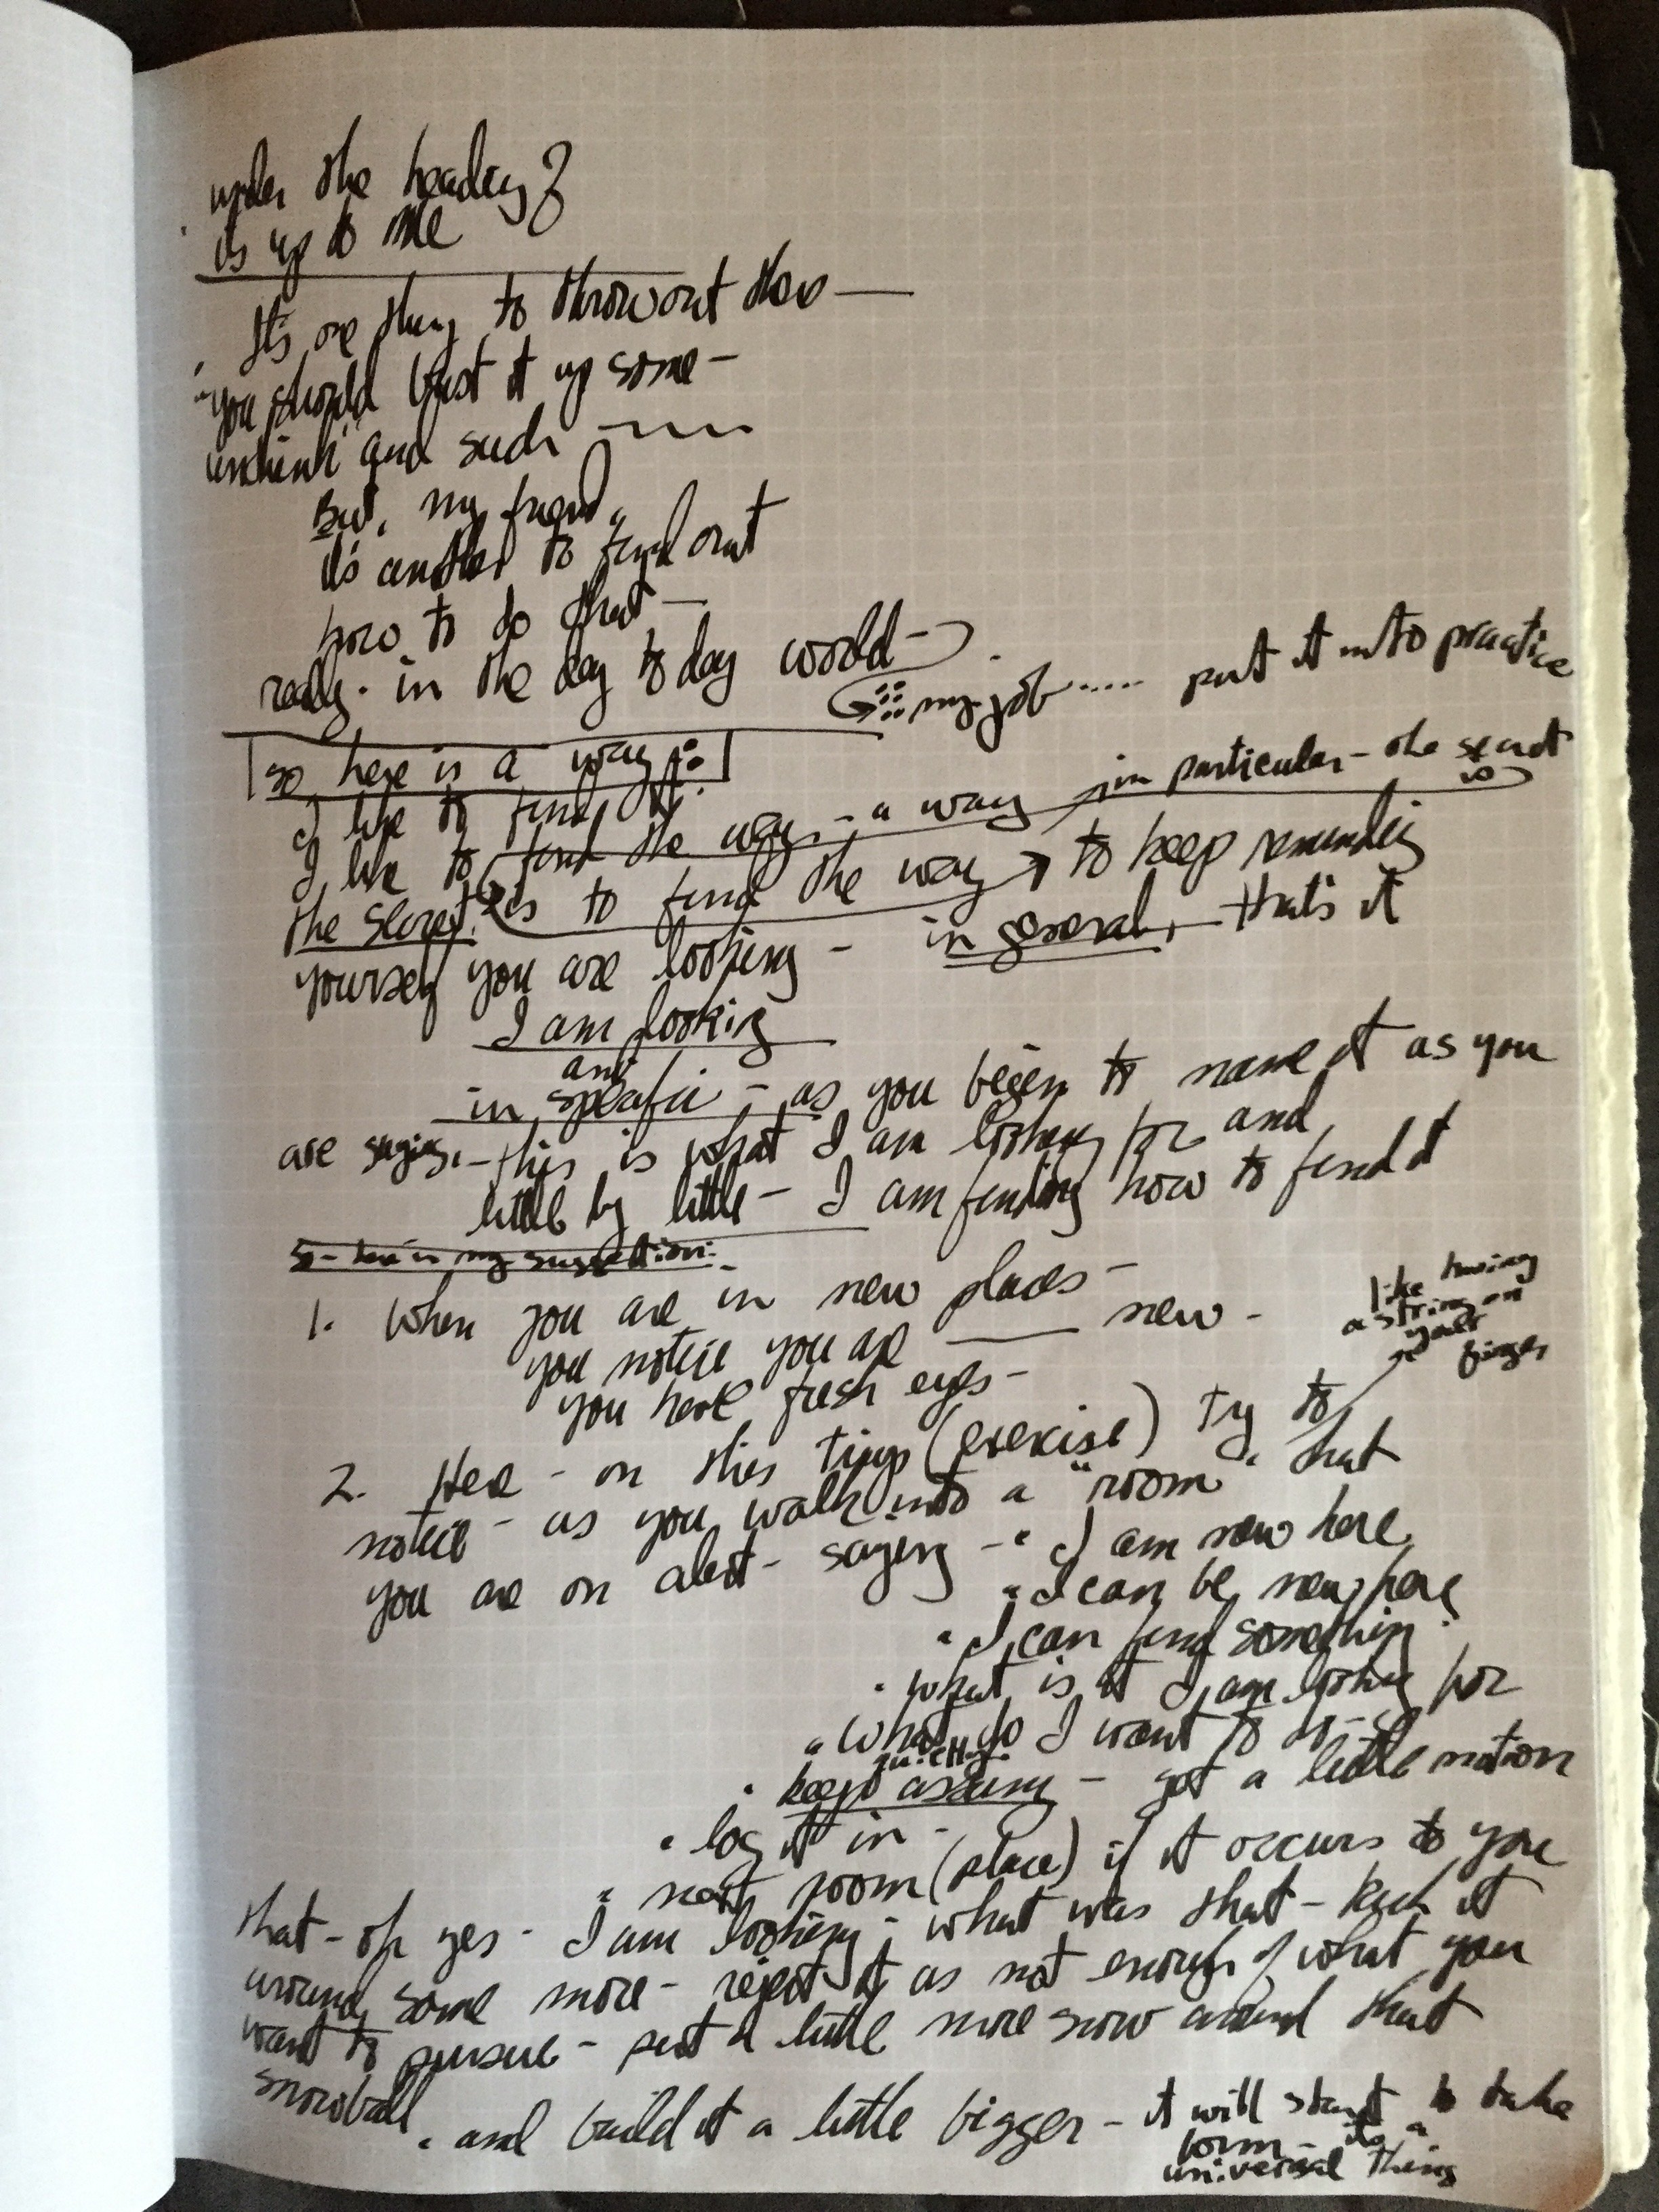 under the heading of
its up to me
It's one thing to throw out there —
you should bust it up some —
unthink and such
But, my friend,
it's another to find out
how to do that —
really. in the day to day world —
my job ..... put it into practice
so, here is a way:
I like to find it.
I like to find the way - a way in particular - the secret is
the secret is to find the way → to keep reminding
yourself you are looking - in general, - that's it
I am looking
and
in specific - as you begin to name it as you
are saying - this is what I am looking for and
little by little - I am finding how to find it
so - here is my suggestion:
1. When you are in new places -
you notice you are new -
you have fresh eyes -
like having
a string on
your
finger
2. Here - on this (exercise) try to
notice - as you walk into a "room" that
you are on alert - saying - • I am new here
• I can be new here
• I can find something
• what is it I am looking for
• What do I want to
quietly
• keep asking - got a little notion
• log it in -
• next room (place) if it occurs to you
that - oh yes - I am looking - what was that - kick it
around some more - reject it as not enough of what you
want to pursue - put a little more snow around that
snowball
• and build it a little bigger - it will start to take
form - its a
universal thing